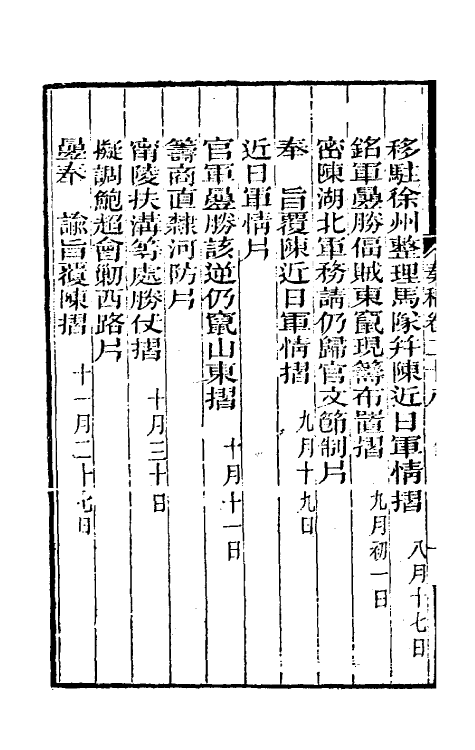 移駐徐州整理馬隊幷陳近日軍情摺 八月十七日
銘軍疊勝偪賊東竄現籌布置摺 九月初一日
密陳湖北軍務請仍歸官文節制片
奉 旨覆陳近日軍情摺 九月十九日
近日軍情片
官軍疊勝該逆仍竄山東摺 十月十一日
籌商直隸河防片
甯陵扶溝等處勝仗摺 十月三十日
擬調鮑超會勦西路片
疊奉 諭旨覆陳摺 十一月二十七日